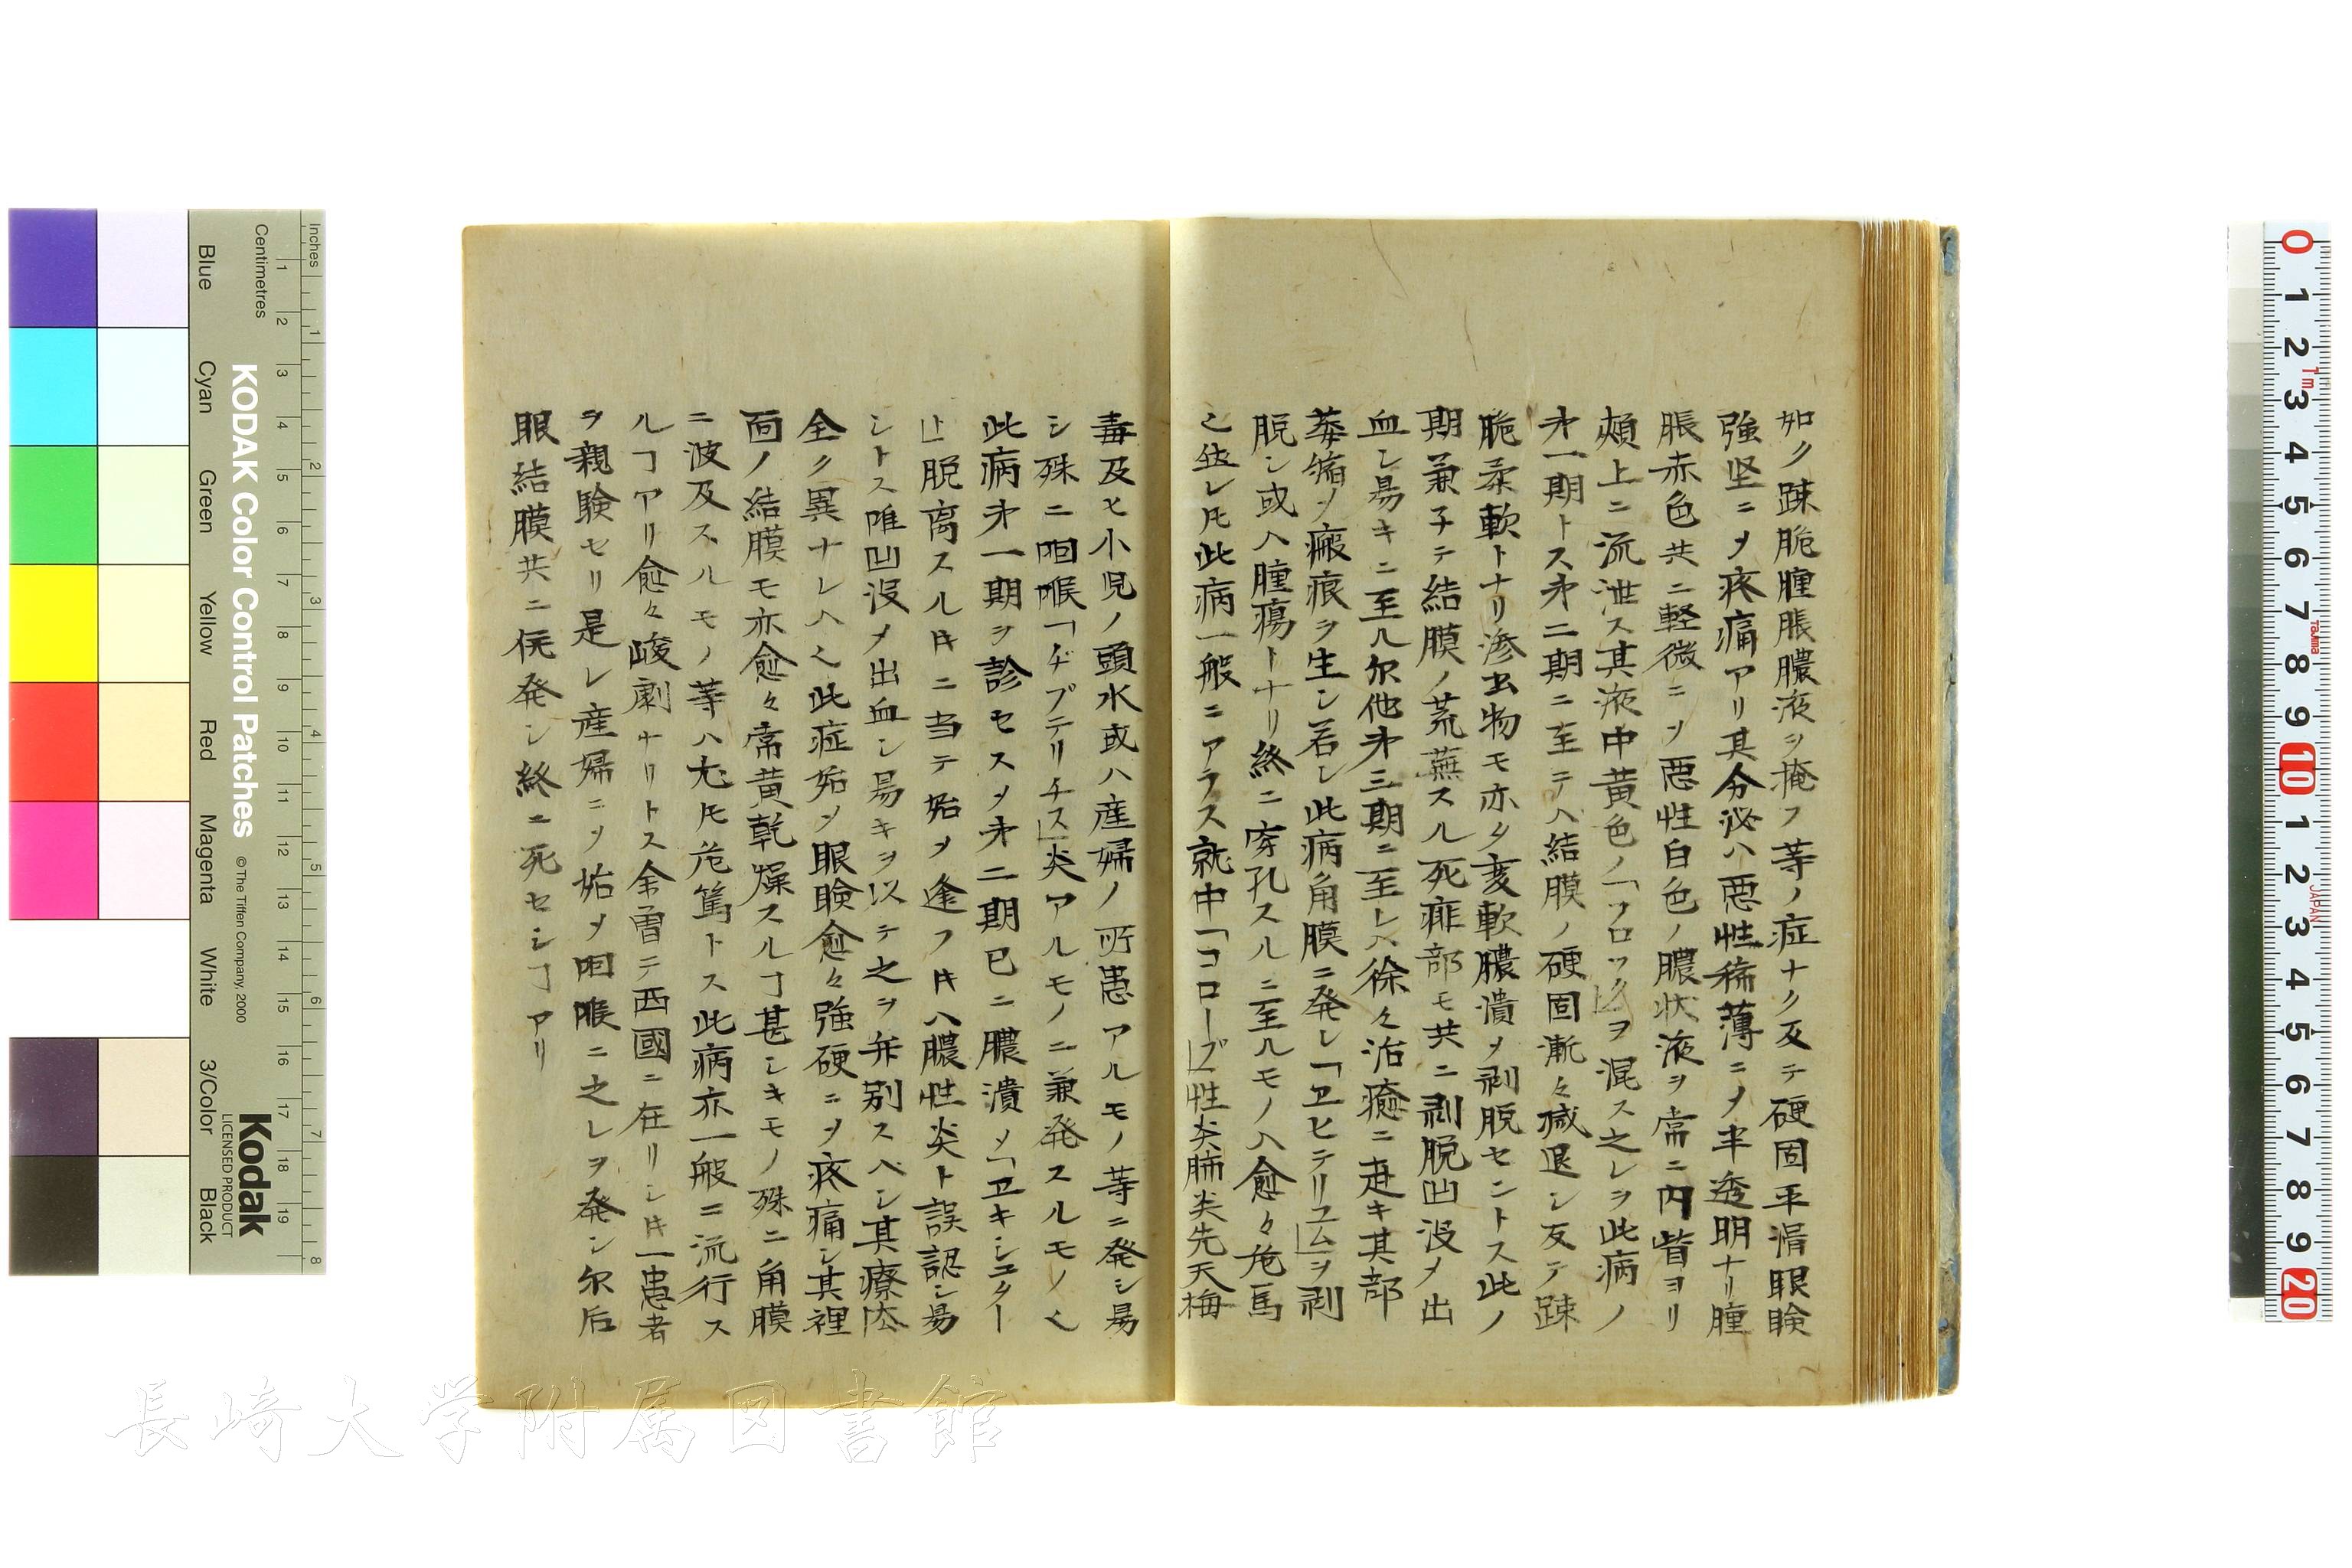 如ク踈脆腫脹膿液ヲ掩フ等ノ症ナク反テ硬固平滑眼瞼
強坚ニヿ疼痛アリ其分泌ハ悪性稀薄ニヿ半透明ナリ腫
脹赤色共ニ軽微ニヿ悪性白色ノ膿状液ヲ常ニ内眥ヨリ
頰上ニ流泄ス其液中黄色ノ「フロック」ヲ混ス之レヲ此病ノ
才一期トス才二期ニ至テハ結膜ノ硬固漸々減退シ反テ踈
脆柔軟トナリ滲出物モ亦タ変軟膿潰メ剥脱セントス此ノ
期兼子テ結膜ノ荒蕪スル死痱部モ共ニ剥脱凹没メ出
血シ易キニ至ル尔他才三期ニ至レハ徐々治癒ニ赴キ其部
萎縮メ瘢痕ヲ生シ若シ此病角膜ニ発シ「ヱヒテリユム」ヲ剥
脱シ或ハ腫瘍トナリ終ニ穿孔スルニ至ルモノハ愈々危篤
之レ此病一般ニアラス就中「コローブ」性炎肺炎先天梅
毒及ヒ小児ノ頭水或ハ産婦ノ所患アルモノ等ニ発シ易
シ殊ニ咽喉「ヂプテリチス」炎アルモノニ兼発スルモノ也
此病才一期ヲ診セスメ才二期已ニ膿潰メ「ヱキシユター
ト」脱离スルキニ当テ始メ逢フキハ膿性炎ト誤認シ易
シトス唯凹没メ出血シ易キヲ以テ之ヲ弁別スベシ其療法
全ク異ナレハ也此症始メ眼瞼愈々強硬ニヿ疼痛シ其裡
面ノ結膜モ亦愈々帯黄乾燥スルヿ甚シキモノ殊ニ角膜
ニ波及スルモノ等ハ尤𪜈危篤トス此病亦一般ニ流行ス
ルヿアリ愈々峻劇ナリトス余曽テ西國ニ在リシキ一患者
ヲ親験セリ是レ産婦ニヿ始メ咽喉ニ之レヲ発シ尔后
眼結膜共ニ併発シ終ニ死セシヿアリ
KODAK Color Control Patches
© The Tiffen Company, 2000
Kodak
LICENSED PRODUCT
Inches
1 2 3 4 5 6 7 8
Centimetres
1 2 3 4 5 6 7 8 9 10 11 12 13 14 15 16 17 18 19
Blue Cyan Green Yellow Red Magenta White 3/Color Black
0 1 2 3 4 5 6 7 8 9 10 1 2 3 4 5 6 7 8 9 20
1m TAJIMA JAPAN
長崎大学附属図書館